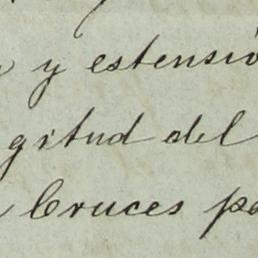 y estensió
gitud del
Cruces pa